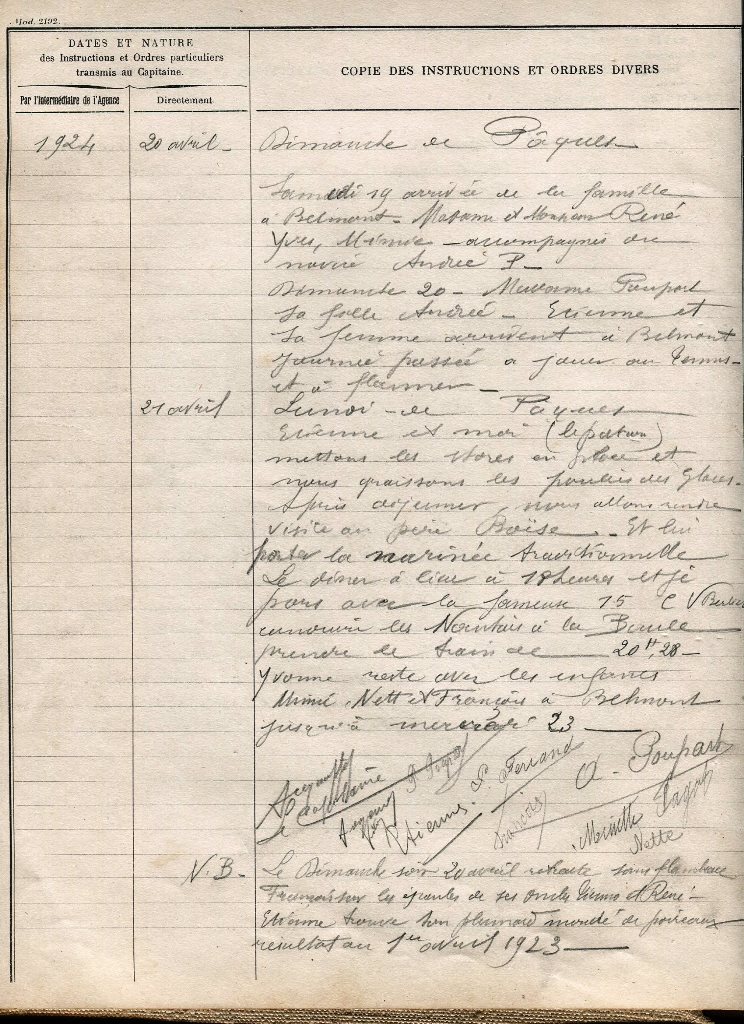 Mod. 2192.
DATES ET NATURE
des Instructions et Ordres particuliers
transmis au Capitaine.
COPIE DES INSTRUCTIONS ET ORDRES DIVERS
Par l'Intermédiaire de l'Agence
Directement
1924 20 avril - Dimanche de Pâques
Samedi 19 arrivée de la famille
à Belmont - Madame et Monsieur René
Yves, Mimie - accompagnés du
André P -
Dimanche 20 - Madame Poupart
Sa fille Andrée - Etienne et
Sa femme arrivent à Belmont
journée passée à jouer au Tennis -
et à flanner -
21 avril Lundi - de Pâques
Etienne et moi (le patron)
mettons les stores en place et
nous graissons les poulies des glaces -
Après déjeuner, nous allons rendre
visite au père Boïse - Et lui
porter la marinée traditionnelle
Le dîner à lieu à 18 heures et je
pars avec la fameuse 15 CV
conduire les Nantais à la Baule
prendre le train de 20H,28 -
Yvonne reste avec les enfants
Mimi, Nett et François à Belmont
jusqu'à mercredi 23
Etienne P. Ferrand
François
A. Poupart
Mirette
Nette
N.B - Le Dimanche soir 20 avril retraite sans flambeau
François sur les épaules de ses oncles et René -
Etienne trouve son plumard de poireaux
résultat au 1er avril 1923